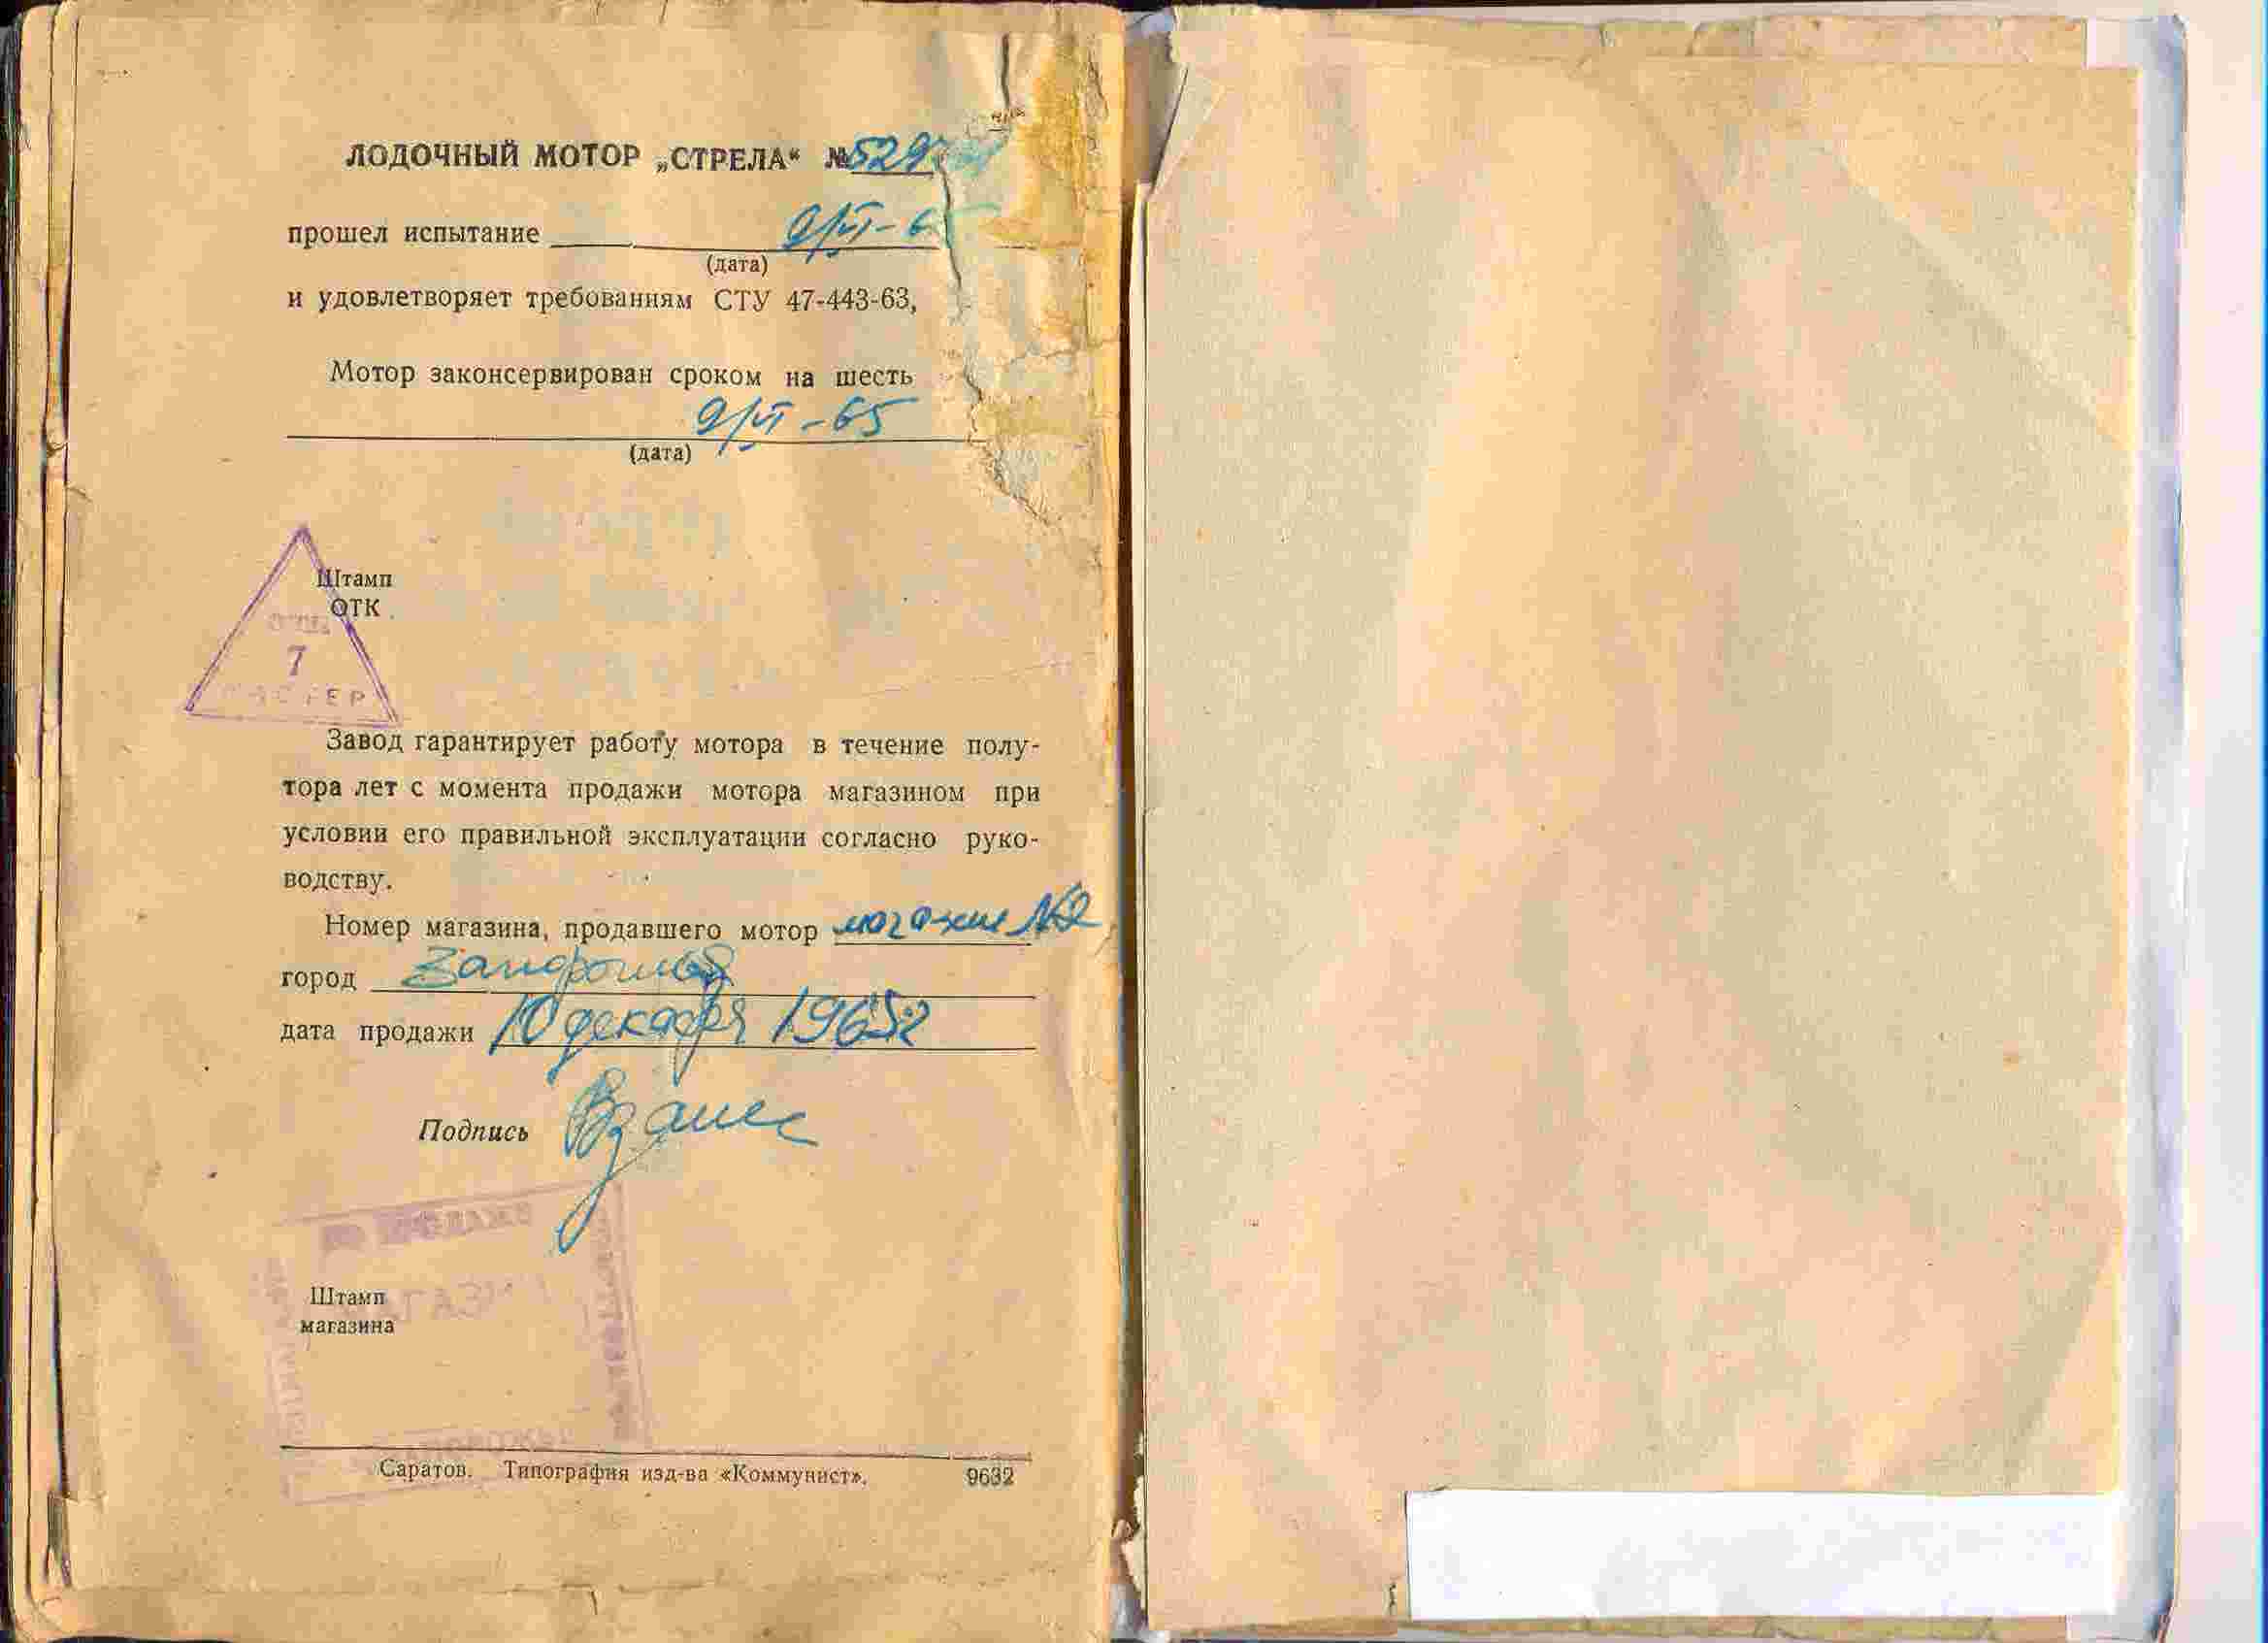 ЛОДОЧНЫЙ МОТОР „СТРЕЛА“ №529
прошел испытание 9/VI-6
(дата)
и удовлетворяет требованиям СТУ 47-443-63,
Мотор законсервирован сроком на шесть
9/VI-65
(дата)
Штамп
ОТК
7
Завод гарантирует работу мотора в течение полу-
тора лет с момента продажи мотора магазином при
условии его правильной эксплуатации согласно руко-
водству.
Номер магазина, продавшего мотор магазин №2
город Запорожье
дата продажи 10 декабря 1965г
Подпись
Штамп
магазина
Саратов. Типография изд-ва «Коммунист». 9632